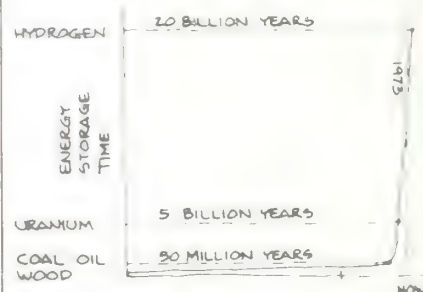 HYDROGEN 20 BILLION YEARS
1973
ENERGY
STORAGE
TIME
URANIUM 5 BILLION YEARS
COAL OIL 50 MILLION YEARS
WOOD